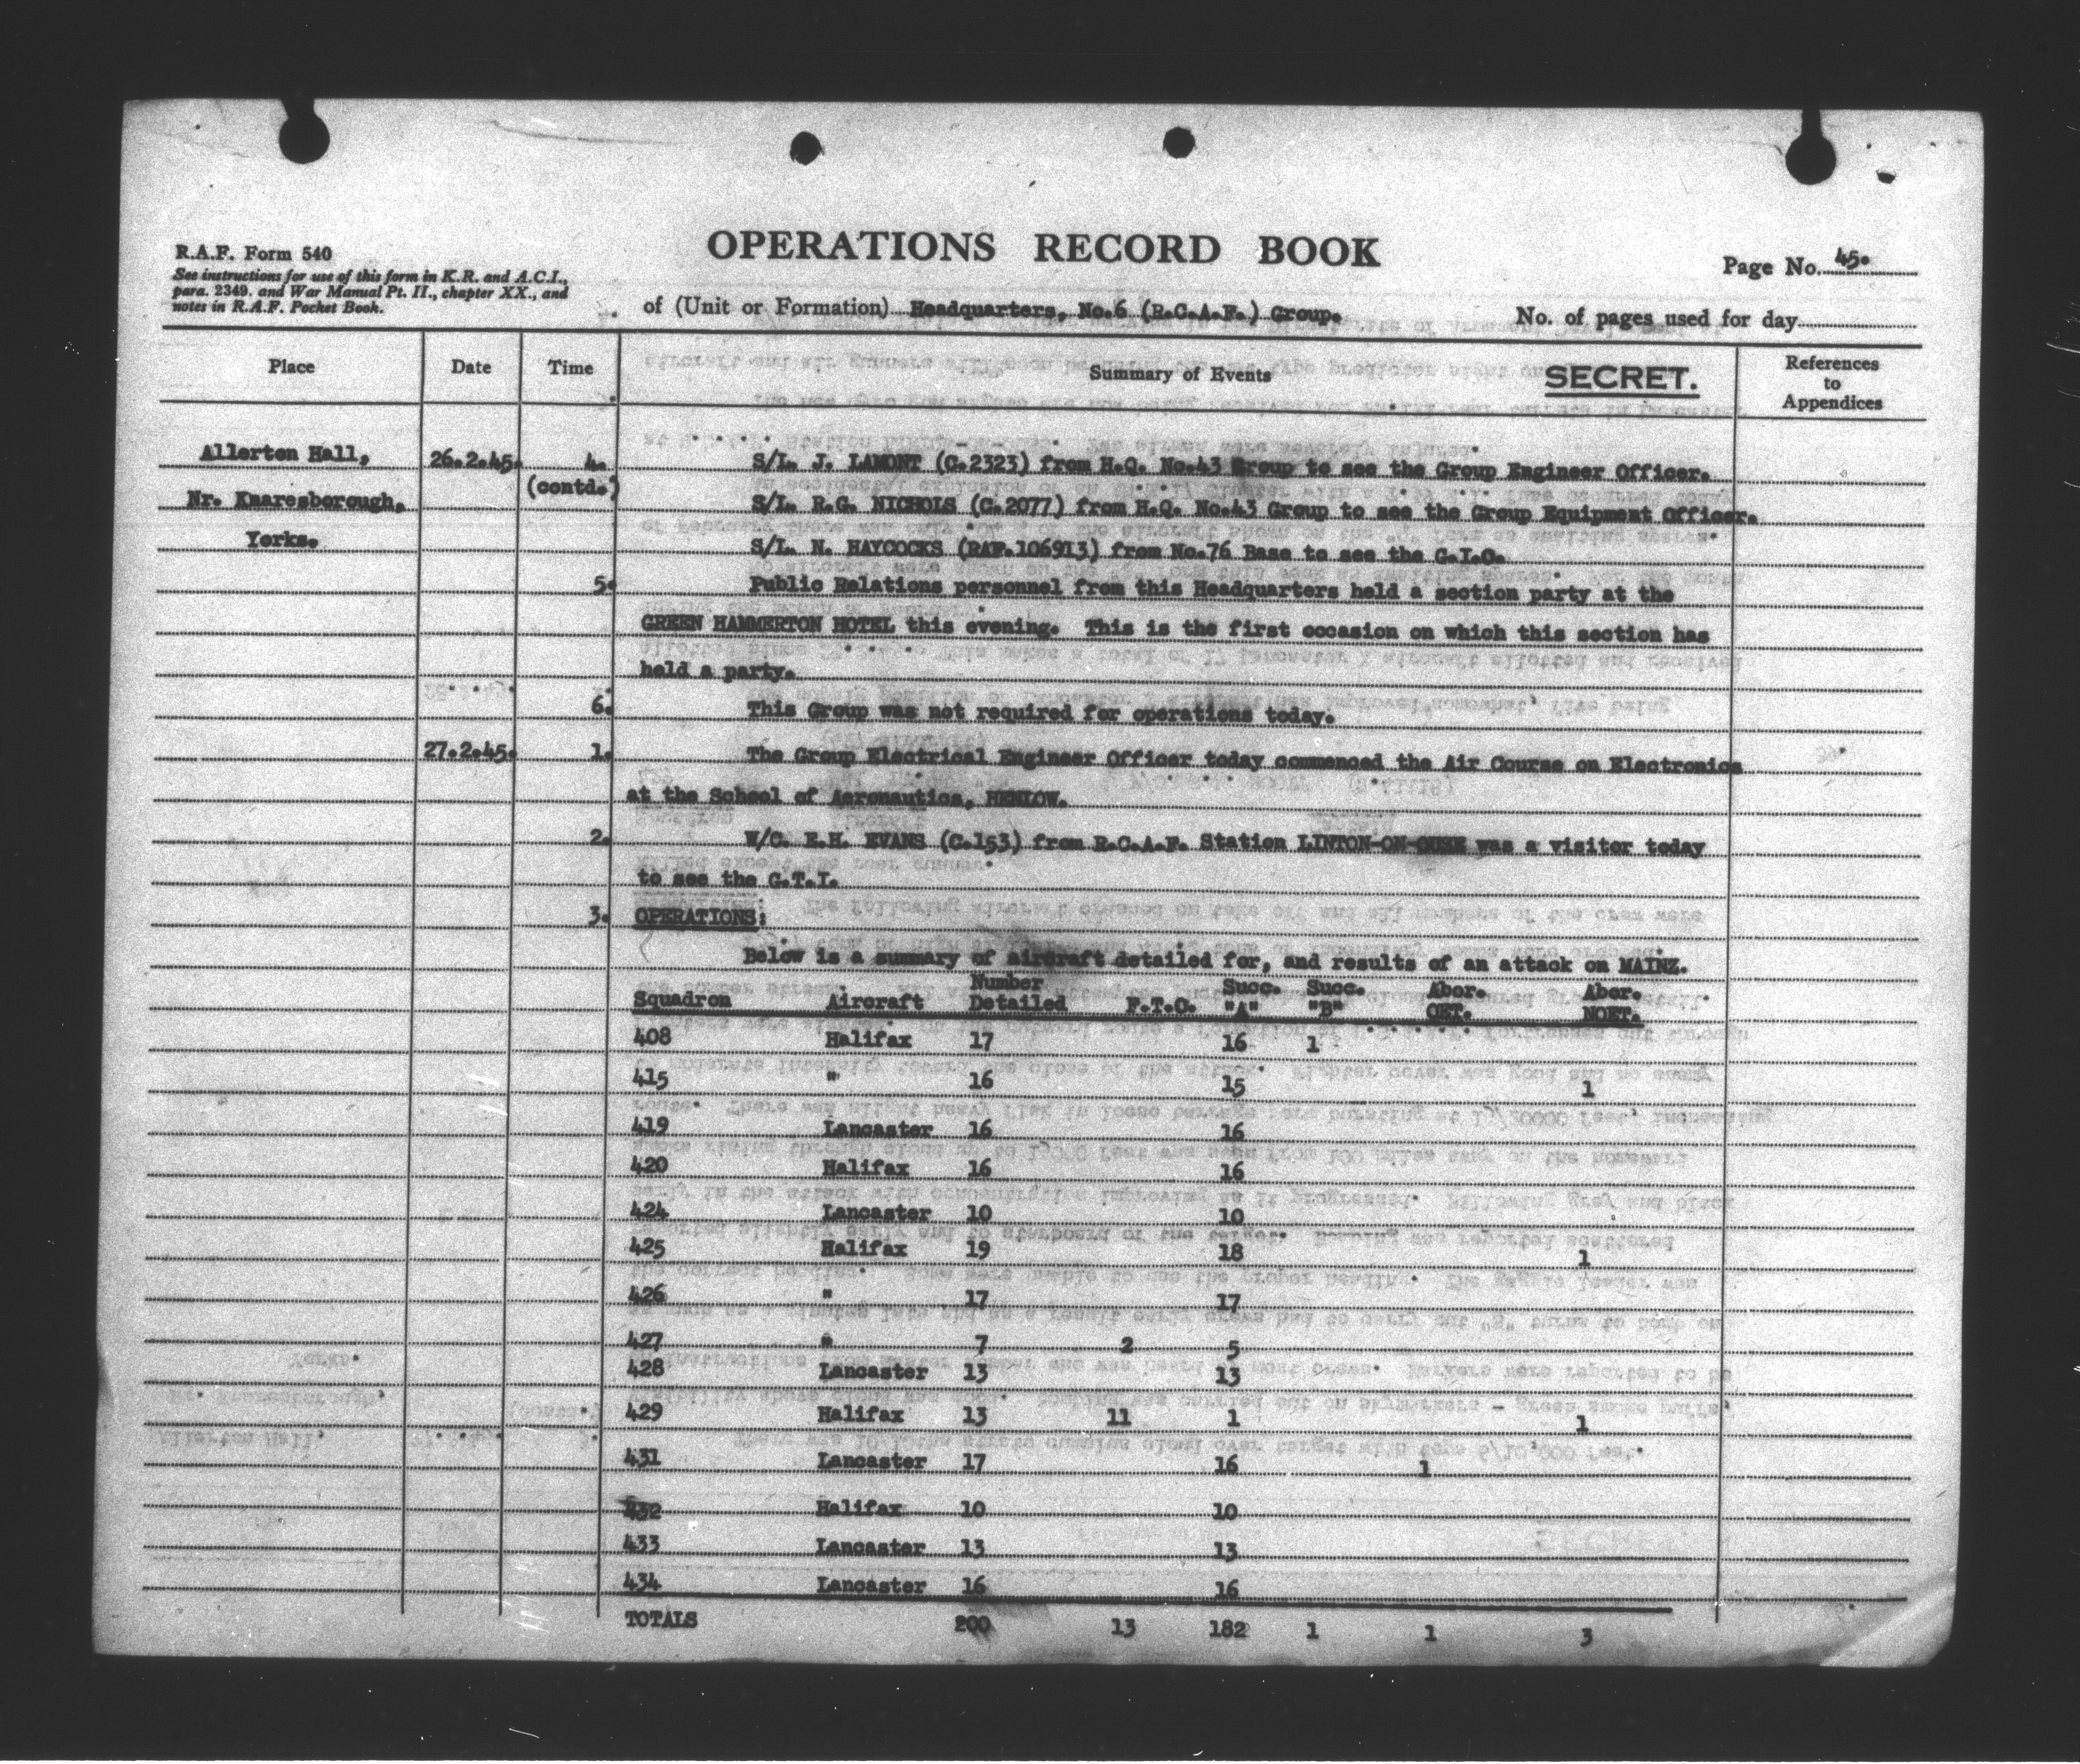 OPERATIONS RECORD BOOK
R.A.F. Form 540
See instructions for use of this form in K.R. and A.C.I.,
para. 2349. and War Manual Pt. II., chapter XX., and
notes in R.A.F. Pocket Book.
Page No. 45.
of (Unit or Formation) Headquarters, No.6 (R.C.A.F.) Group.
No. of pages used for day
Place Date Time Summary of Events SECRET. References to Appendices
Allerton Hall, 26.2.45. 4. S/L. J. LAMONT (C.2323) from H.Q. No.43 Group to see the Group Engineer Officer.
(contd.)
Nr. Knaresborough, S/L. R.G. NICHOLS (C.2077) from H.Q. No.43 Group to see the Group Equipment Officer.
Yorks. S/L. N. HAYCOCKS (RAF.106913) from No.76 Base to see the G.I.O.
5. Public Relations personnel from this Headquarters held a section party at the
GREEN HAMMERTON HOTEL this evening. This is the first occasion on which this section has
held a party.
6. This Group was not required for operations today.
27.2.45. 1. The Group Electrical Engineer Officer today commenced the Air Course on Electronics
at the School of Aeronautics, HENLOW.
2. W/C. E.H. EVANS (C.153) from R.C.A.F. Station LINTON-ON-OUSE was a visitor today
to see the G.T.I.
3. OPERATIONS:
Below is a summary of aircraft detailed for, and results of an attack on MAINZ.
Squadron Aircraft Number Detailed F.T.O. Succ. "A" Succ. "B" Abor. OET. Abor. NOET.
408 Halifax 17 16 1
415 " 16 15 1
419 Lancaster 16 16
420 Halifax 16 16
424 Lancaster 10 10
425 Halifax 19 18 1
426 " 17 17
427 " 7 2 5
428 Lancaster 13 13
429 Halifax 13 11 1 1
431 Lancaster 17 16 1
432 Halifax 10 10
433 Lancaster 13 13
434 Lancaster 16 16
TOTALS 200 13 182 1 1 3